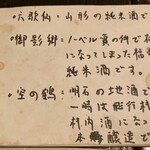 ・六歌仙・山形の純米酒で
・御影郷・ノーベル賞の何で有
になってしまった福
純米酒です。
・空の鶴・明石の地酒で
一時は飛行杯
杯内酒にな
本醸造で